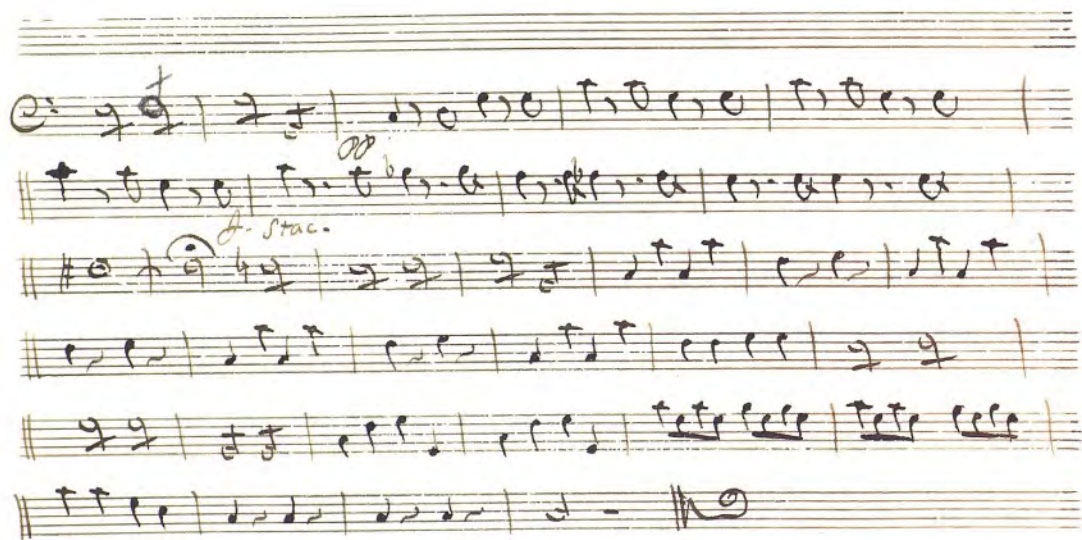 pp
A. Stac.